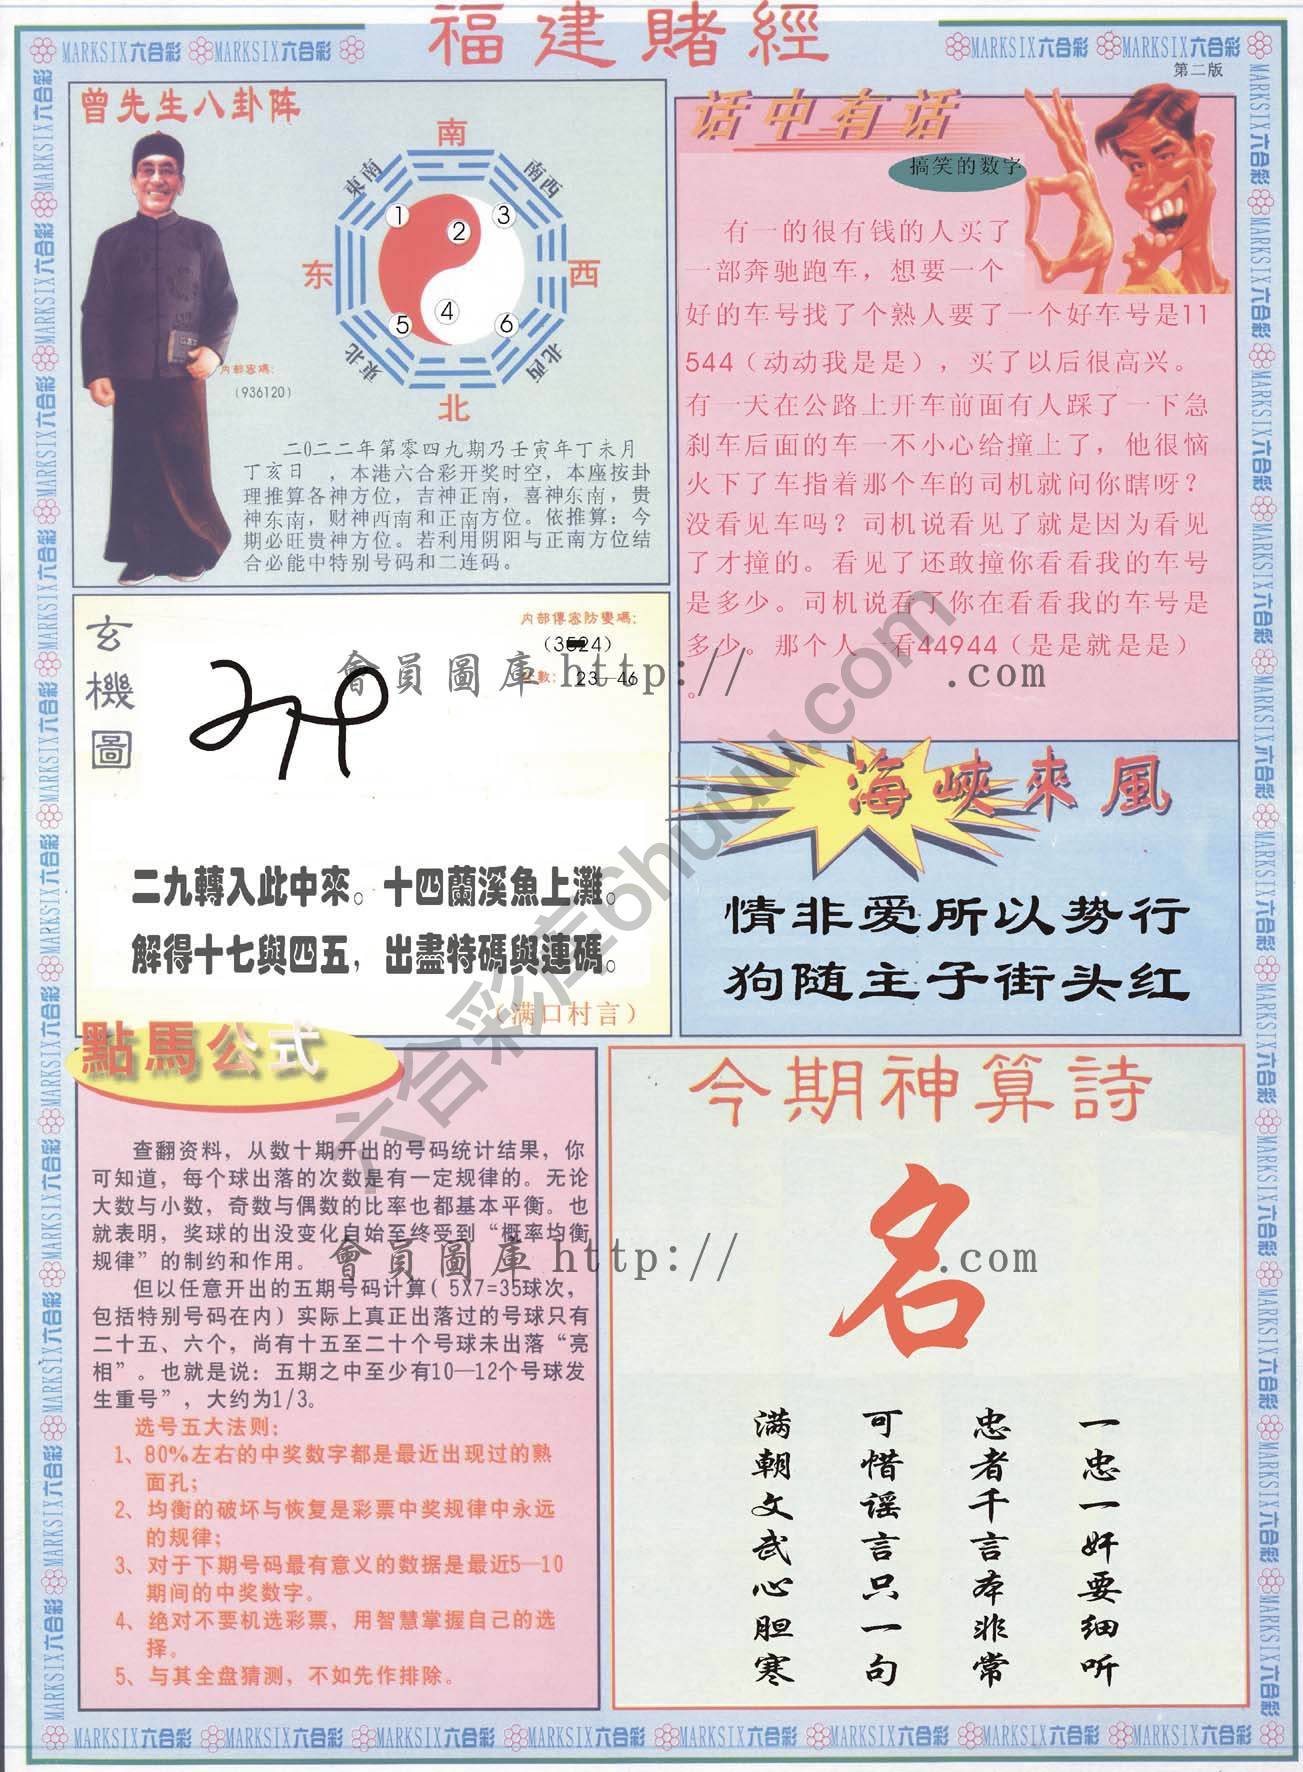 福建賭經
MARKSIX六合彩 MARKSIX六合彩
MARKSIX六合彩 MARKSIX六合彩
第二版
曾先生八卦阵
南
東南
南西
1
2
3
东
西
4
5
6
東北
北西
北
内部密碼:
(936120)
二0二二年第零四九期乃壬寅年丁未月
丁亥日 ,本港六合彩开奖时空,本座按卦
理推算各神方位,吉神正南,喜神东南,贵
神东南,财神西南和正南方位。依推算:今
期必旺贵神方位。若利用阴阳与正南方位结
合必能中特别号码和二连码。
话中有话
搞笑的数字
有一的很有钱的人买了
一部奔驰跑车,想要一个
好的车号找了个熟人要了一个好车号是11
544(动动我是是),买了以后很高兴。
有一天在公路上开车前面有人踩了一下急
刹车后面的车一不小心给撞上了,他很恼
火下了车指着那个车的司机就问你瞎呀?
没看见车吗?司机说看见了就是因为看见
了才撞的。看见了还敢撞你看看我的车号
是多少。司机说看了你在看看我的车号是
多少。那个人一看44944(是是就是是)
。
玄機圖
内部傳密防變碼:
(3524)
數: 23—46
會員圖庫 http:// .com
二九轉入此中來。十四蘭溪魚上灘。
解得十七與四五,出盡特碼與連碼。
(满口村言)
海峽來風
情非爱所以势行
狗随主子街头红
六合彩库6huuu.com
點馬公式
查翻资料,从数十期开出的号码统计结果,你
可知道,每个球出落的次数是有一定规律的。无论
大数与小数,奇数与偶数的比率也都基本平衡。也
就表明,奖球的出没变化自始至终受到“概率均衡
规律”的制约和作用。
但以任意开出的五期号码计算( 5X7=35球次,
包括特别号码在内)实际上真正出落过的号球只有
二十五、六个,尚有十五至二十个号球未出落“亮
相”。也就是说:五期之中至少有10—12个号球发
生重号”,大约为1/3。
选号五大法则:
1、80%左右的中奖数字都是最近出现过的熟
面孔;
2、均衡的破坏与恢复是彩票中奖规律中永远
的规律;
3、对于下期号码最有意义的数据是最近5—10
期间的中奖数字。
4、绝对不要机选彩票,用智慧掌握自己的选
择。
5、与其全盘猜测,不如先作排除。
今期神算詩
名
會員圖庫 http:// .com
一忠一奸要细听
忠者千言本非常
可惜谣言只一句
满朝文武心胆寒
MARKSIX六合彩 MARKSIX六合彩 MARKSIX六合彩 MARKSIX六合彩 MARKSIX六合彩 MARKSIX六合彩 MARKSIX六合彩 MARKSIX六合彩